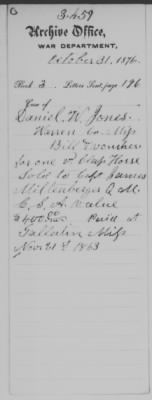 3459
Archive Office,
WAR DEPARTMENT,
October 31, 1876.
Book 3. Letters Sent, page 196
Case of
Daniel W. Jones.
Warren Co. Miss
Bill & voucher
for one Horse
Sold to Capt James
Miltenberger Q M.
C. S. A. Value
$400.00 Paid at
Gallatin Miss
Nov 21st 1863